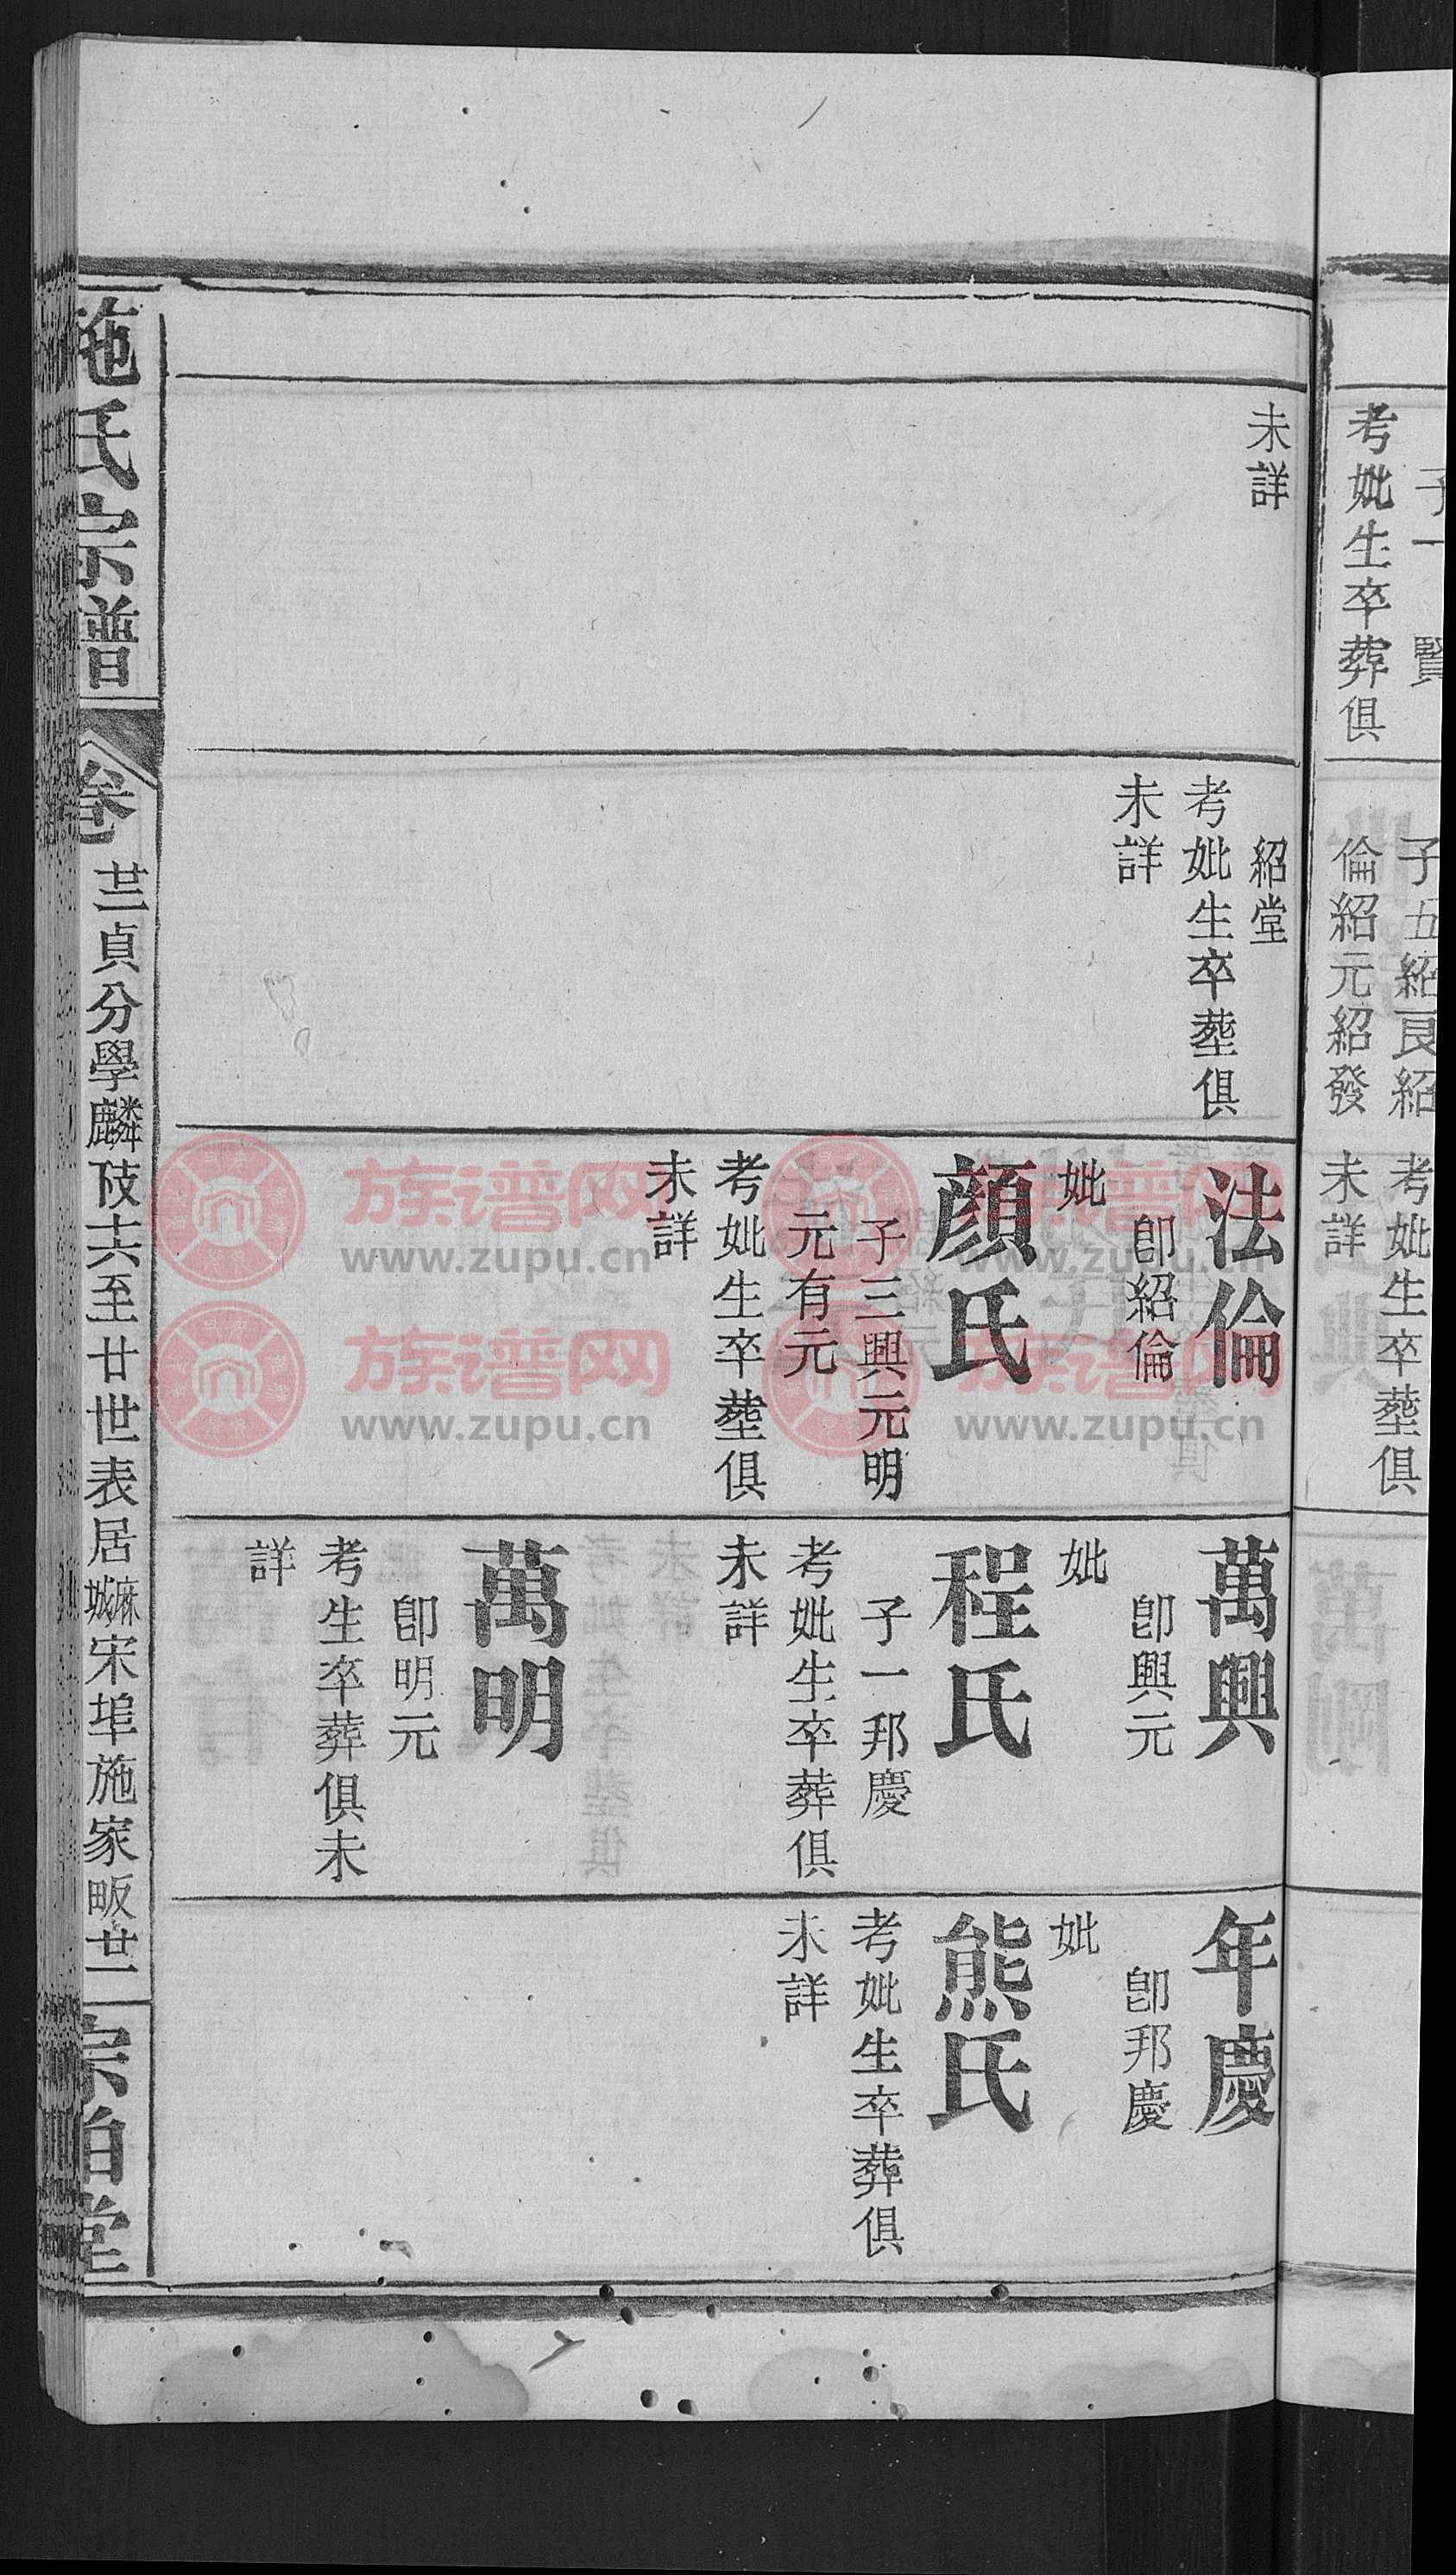 子一　賢
考妣生卒葬俱
未詳
子五紹良紹
倫紹元紹發
紹堂
考妣生卒塟俱
未詳
考妣生卒塟俱
未詳
法倫
卽紹倫
妣
顏氏
子三興元明
元有元
考妣生卒塟俱
未詳
萬興
卽興元
妣
程氏
子一邦慶
考妣生卒葬俱
未詳
萬明
卽明元
考生卒葬俱未
詳
年慶
卽邦慶
妣
熊氏
考妣生卒葬俱
未詳
施氏宗譜
卷
貞分學麟
至廿世表居麻城宋埠施家畈
族谱网
www.zupu.cn
族谱网
www.zupu.cn
族谱网
www.zupu.cn
族谱网
www.zupu.cn